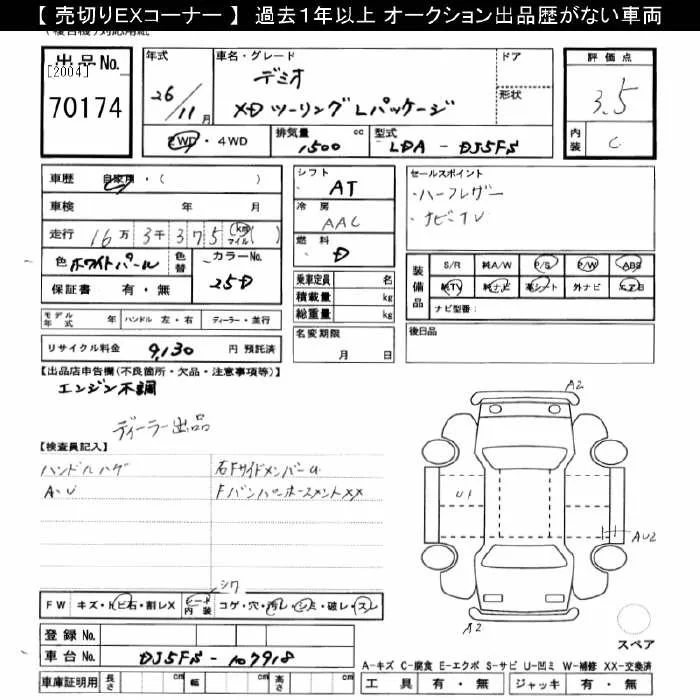 【 売切りEXコーナー 】 過去１年以上 オークション出品歴がない車両
出品No.
[2004]
70174
年式
26/11月
車名・グレード
デミオ
XD ツーリング Lパッケージ
ドア
形状
評価点
3.5
内装
C
2WD・4WD
排気量
1500cc
型式
LDA - DJ5FS
車歴 自家用・( )
車検 年 月
走行 16万3千375 (km マイル) ( )
色 ホワイトパール
色替
カラーNo.
25D
保証書 有・無
モデル年式 年
ハンドル 左・右
ディーラー・並行
リサイクル料金 9,130 円 預託済
シフト
AT
冷房
AAC
燃料
D
乗車定員 名
積載量 kg
総重量 kg
名変期限
月 日
セールスポイント
・ハーフレザー
・ナビTV
装備品
S/R 純A/W P/S P/W ABS
純TV 純ナビ 革シート 外ナビ エアB
ナビ型番:
後日品
【出品店申告欄(不良箇所・欠品・注意事項等)】
エンジン不調
ディーラー出品
【検査員記入】
ハンドルハゲ
A・U
右FサイドメンバーU
Fバンパーホースメント××
A2
U1
AU2
A2
スペア
シワ
FW キズ・トビ石・割レX
シート内装 コゲ・穴・汚レ・シミ・破レ・スレ
登録No.
車台No. DJ5FS - 107918
車庫証明用 長さ cm 幅 cm 高さ cm
A-キズ C-腐食 E-エクボ S-サビ U-凹ミ W-補修 XX-交換済
工具 有・無 ジャッキ 有・無